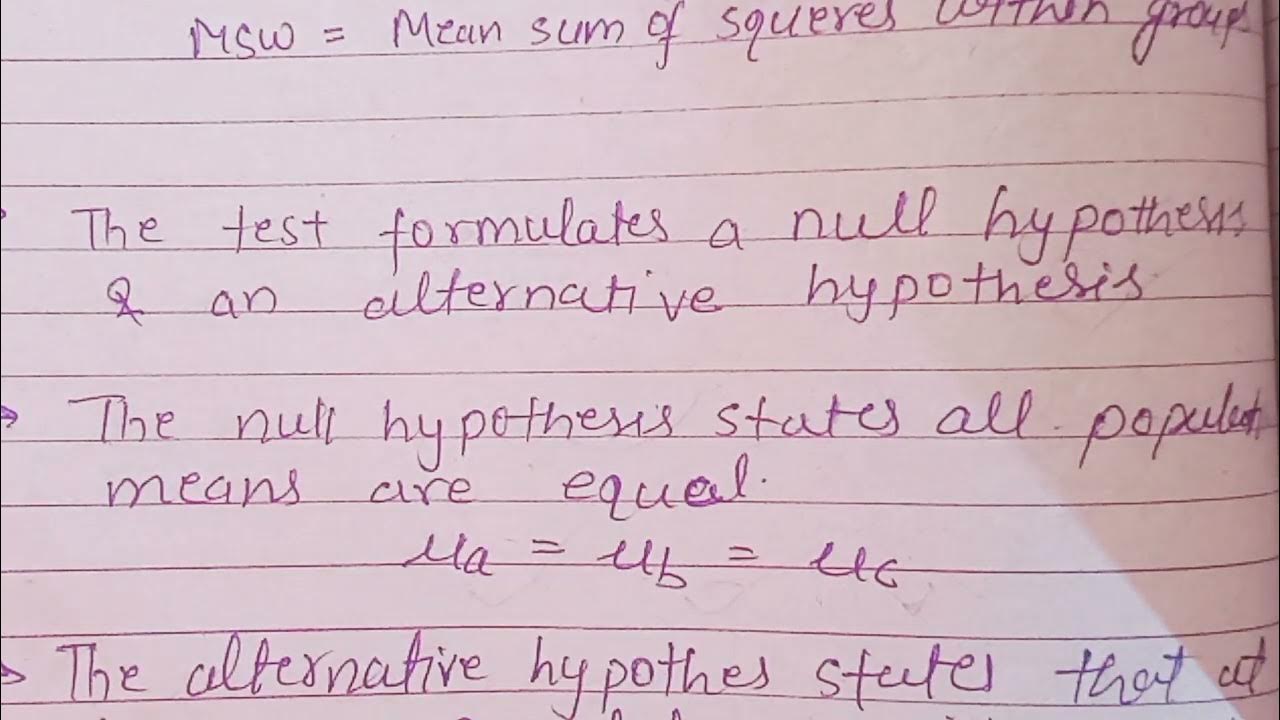 MSW = Mean sum of squeres within group
The test formulates a null hypothesis
& an alternative hypothesis
The null hypothesis states all populat
means are equal.
μa = μb = μc
The alternative hypothes states that at